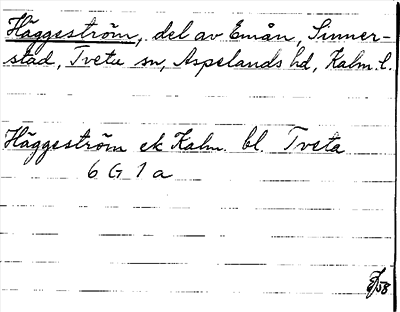 Häggeström, del av Emån, Sinner-
stad, Tveta sn, Aspelands hd, Kalm. l.
Häggeström ek Kalm. bl. Tveta
6 G 1 a